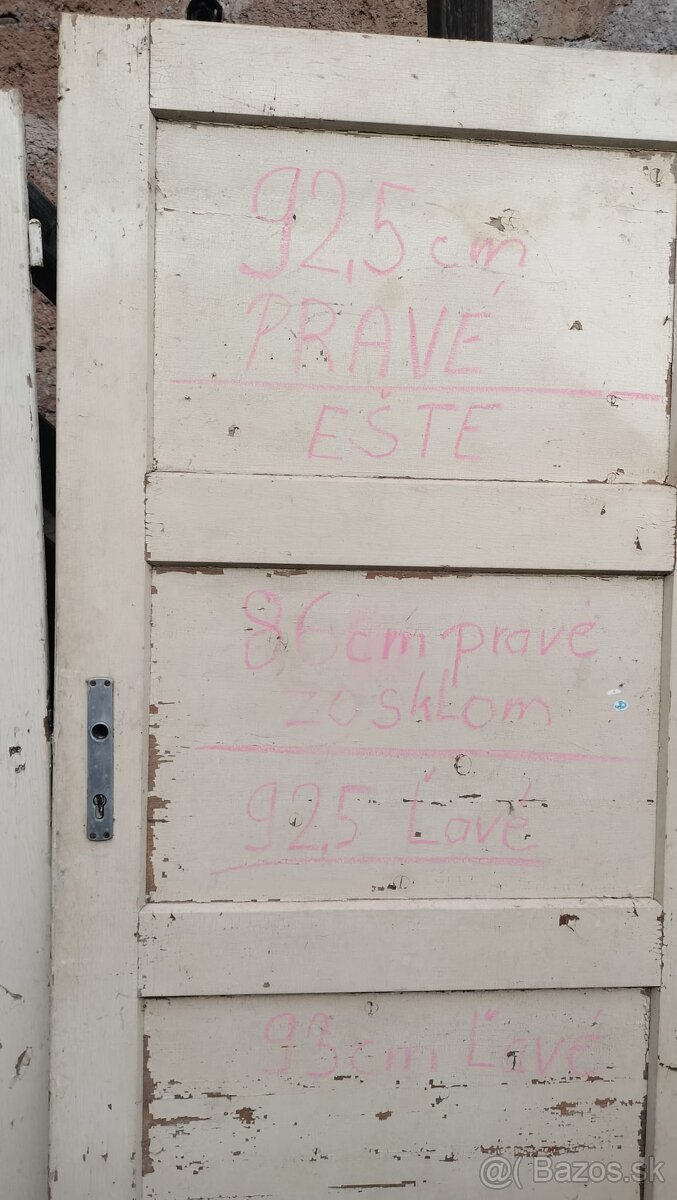 92,5 cm
PRAVÉ
EŠTE
86 cm pravé
zo skLom
92,5 Ľavé
93 cm Ľavé
@( Bazos.sk